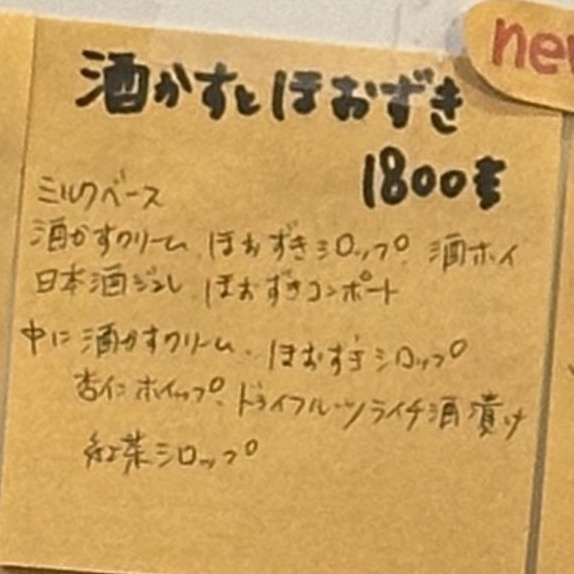 new
酒かすとほおずき
1800円
ミルクベース
酒かすクリーム、ほおずきシロップ、酒ホイ
日本酒ジュレ、ほおずきコンポート
中に酒かすクリーム、ほおずきシロップ
杏仁ホイップ、ドライフルーツライチ酒漬け
紅茶シロップ